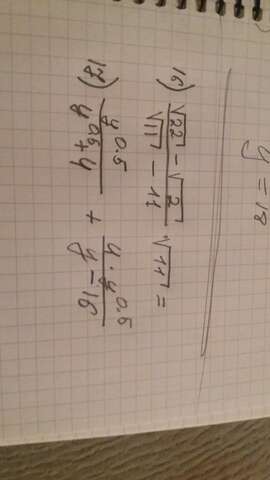 y = 18
16) (√22 - √2)/(√11 - 11) · √11 =
17) y^0.5/(y^0.5+4) + 4·y^0.5/(y-16)